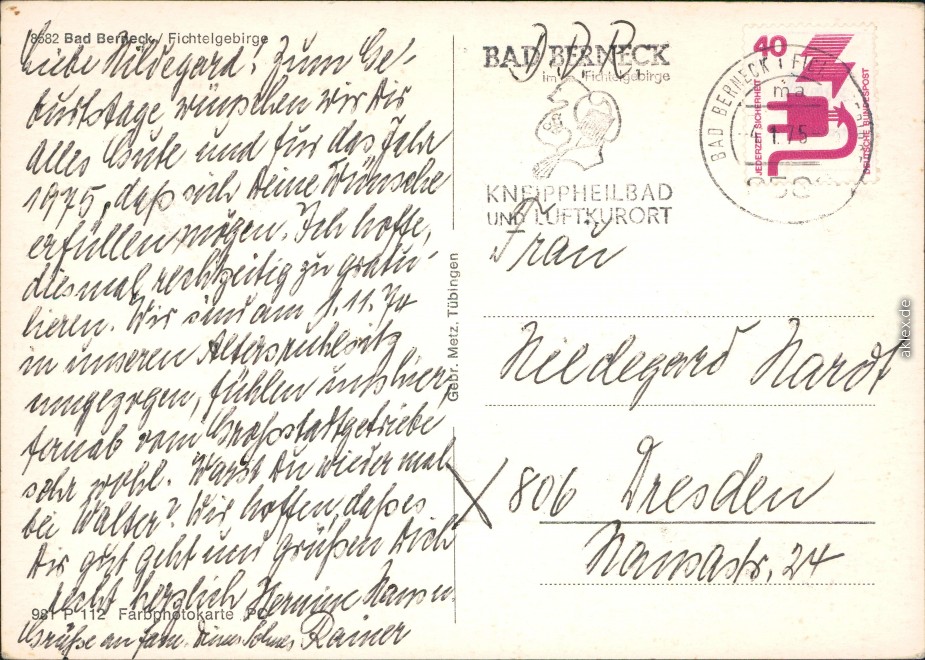 8582 Bad Berneck / Fichtelgebirge
Liebe Hildegard! Zum Ge-
burtstage wünschen wir Dir
alles Gute und für das Jahr
1975, daß sich Deine Wünsche
erfüllen mögen. Ich hoffe,
diesmal rechtzeitig zu gratu-
lieren. Wir sind am 1.11.74
in unseren Altersruhesitz
umgezogen, fühlen uns hier,
fernab vom Großstadtgetriebe
sehr wohl. Warst Du wieder mal
bei Walter? Wir hoffen, daß es
Dir gut geht und grüßen Dich
recht herzlich Hermine Hansen
Grüße an fam. Deines Sohnes Rainer
981 P 112 Farbphotokarte PC
Gebr. Metz, Tübingen
DDR
BAD BERNECK
im Fichtelgebirge
KNEIPPHEILBAD
UND LUFTKURORT
BAD BERNECK i
ma
-4.1.75
858
40
JEDERZEIT SICHERHEIT
DEUTSCHE BUNDESPOST
Frau
Hildegard Hardt
X 806 Dresden
Hansastr. 24
aklex.de